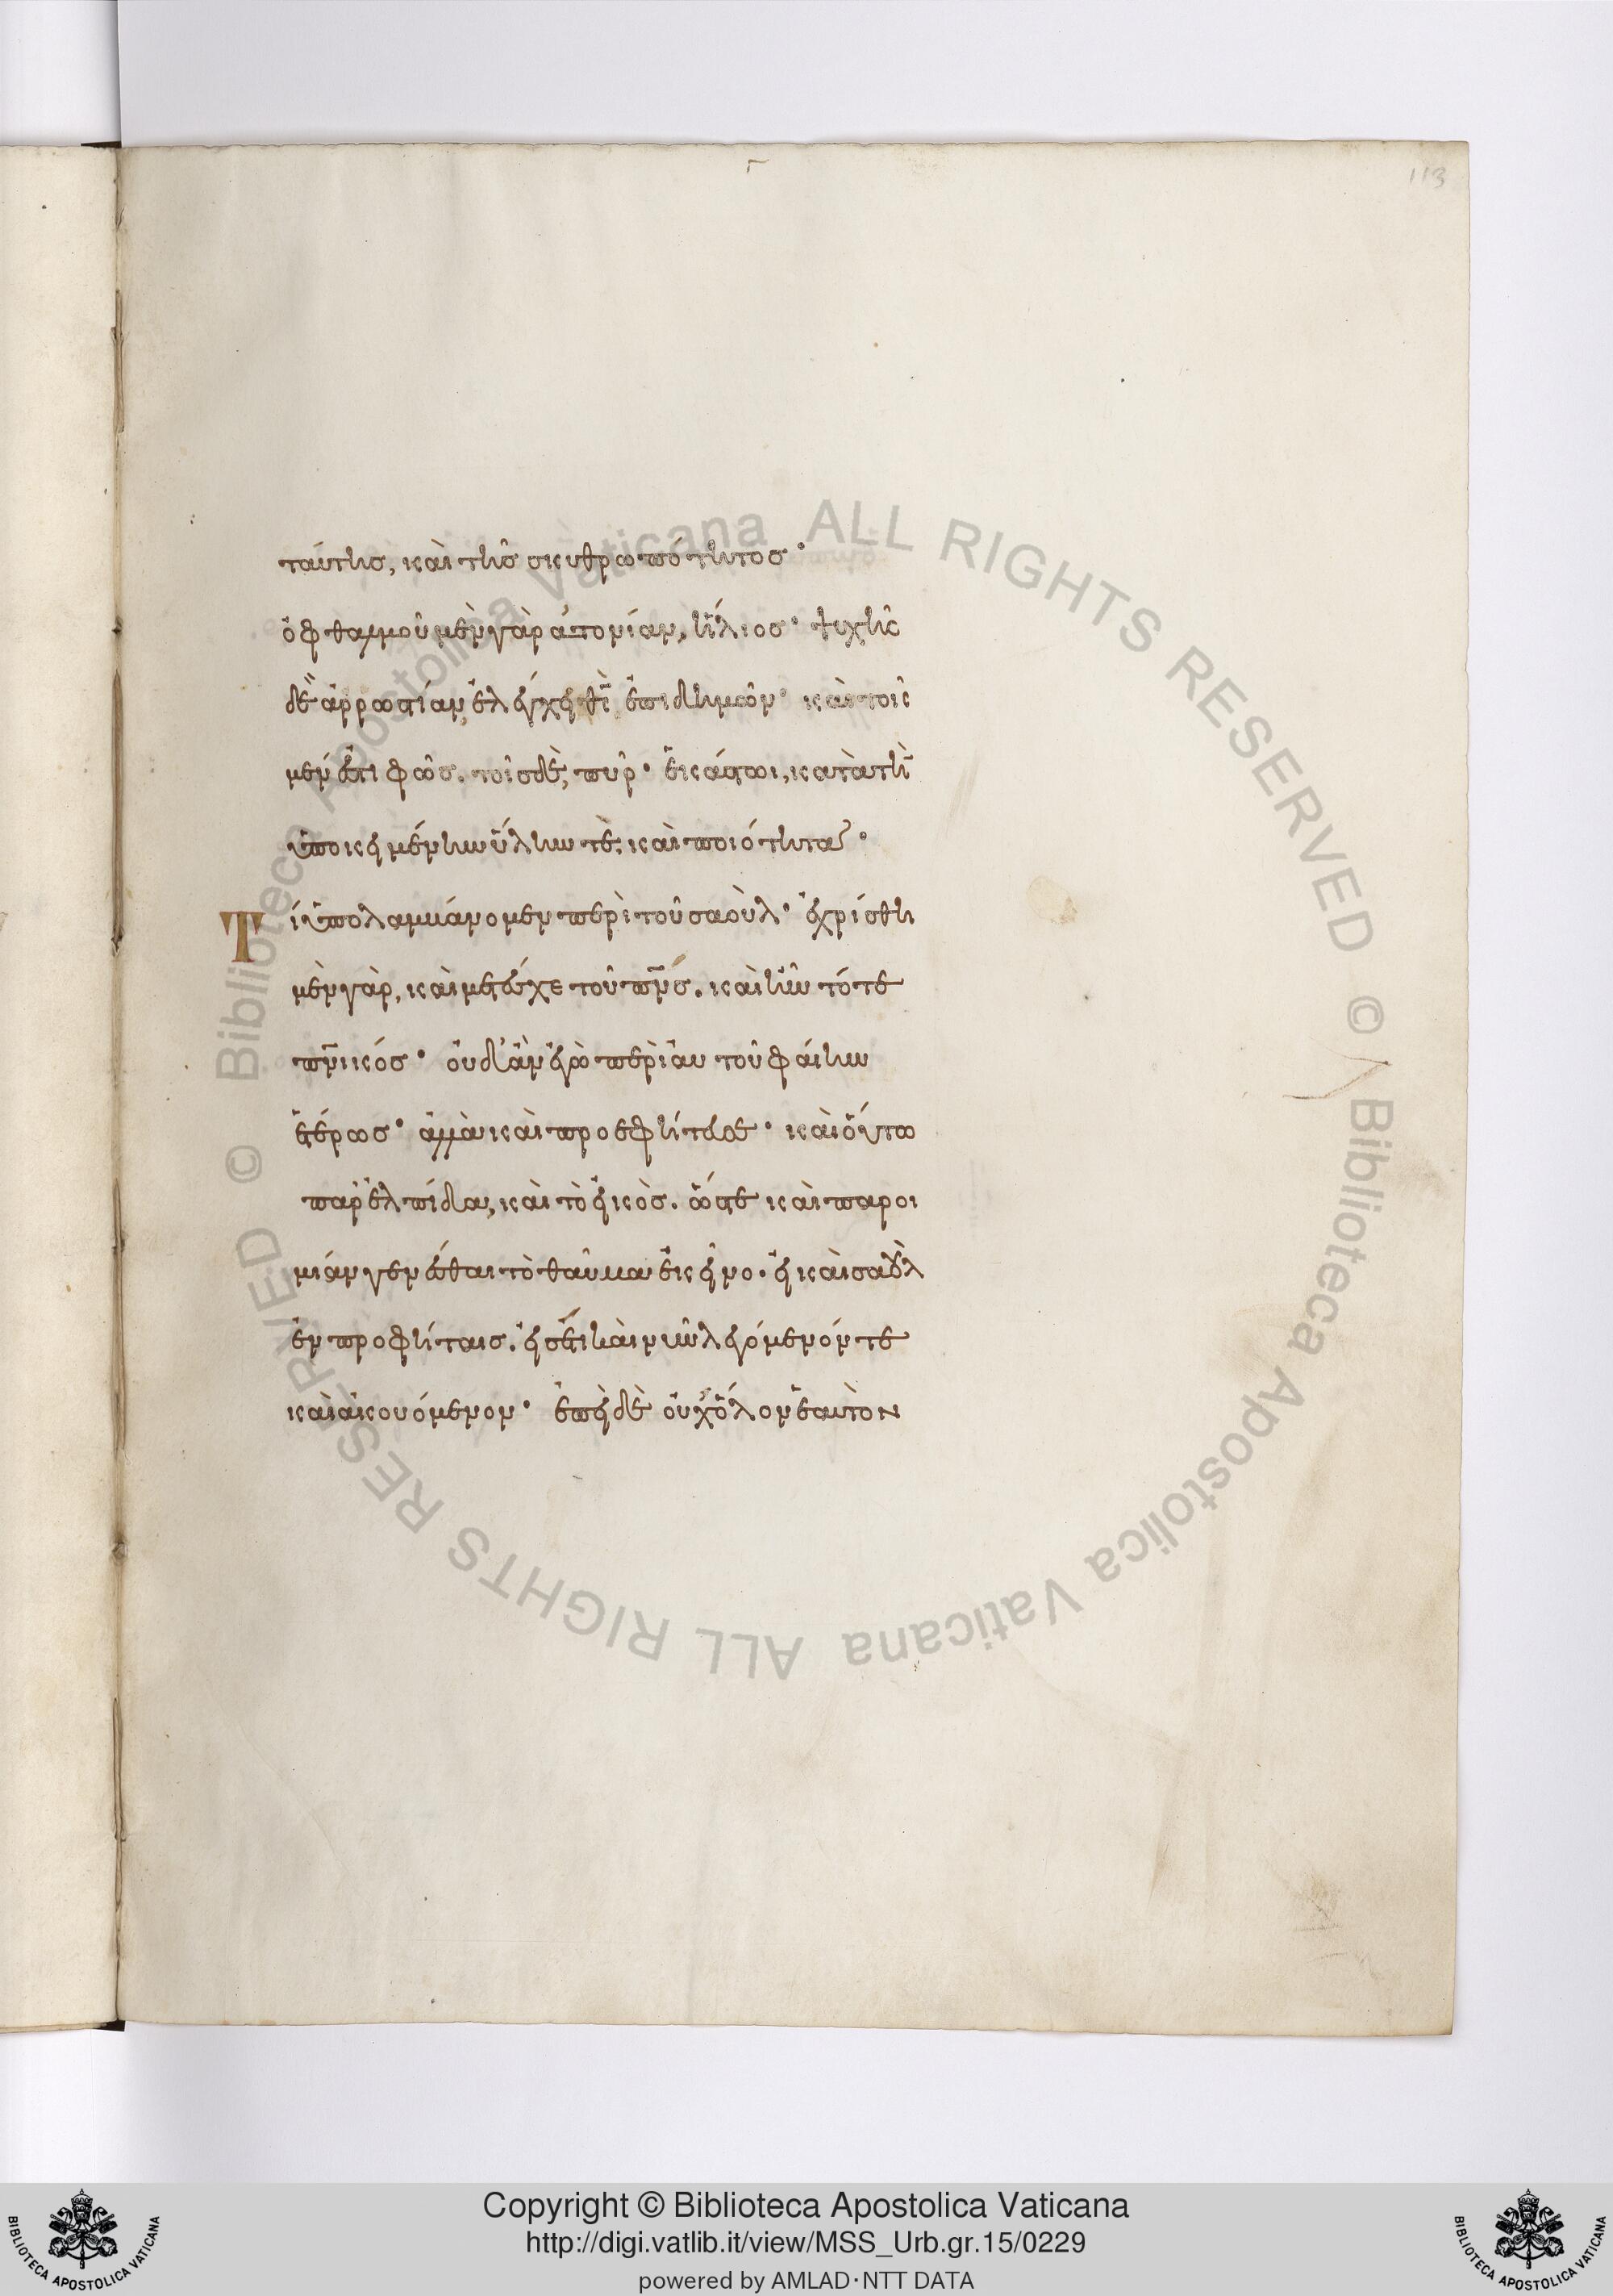 113
ταύτης, καὶ τῆς σκυθρωπότητος·
ὀφθαλμοῦ μὲν γὰρ ἀτονίαν, ἥλιος· ψυχῆς
δὲ ἀρρωστίαν, ἐλέγχει θς̅ ἐπιδημῶν· καὶ τοῖς
μέν ἐστι φῶς. τοῖς δὲ, πῦρ· ἑκάστωι, κατὰ τὴν
ὑποκειμένην ὕλην τὲ, καὶ ποιότητα·
Τί ὑπολαμβάνομεν περὶ τοῦ σαοὺλ· ἐχρίσθη
μὲν γὰρ, καὶ μετέσχε τοῦ πν̅ς. καὶ ἦν τότε
πν̅ικός· οὐδ' ἂν εἴποι περὶ αὐτοῦ φαίην
ἑτέρως· ἀλλὰ καὶ προεφήτευσε· καὶ οὕτω
παρ' ἐλπίδα, καὶ τὸ εἰκὸς. ὥστε καὶ παροι
μίαν γενέσθαι τὸ θαῦμα ἐκεῖνο. εἰ καὶ σαοὺλ
ἐν προφήταις. εἰσέτι καὶ νῦν λεγόμενόν τε
καὶ ἀκουόμενον· ἐπεὶ δὲ οὐχ ὅλον ἑαυτὸν
© Biblioteca Apostolica Vaticana ALL RIGHTS RESERVED © Biblioteca Apostolica Vaticana ALL RIGHTS RESERVED
Copyright © Biblioteca Apostolica Vaticana
http://digi.vatlib.it/view/MSS_Urb.gr.15/0229
powered by AMLAD·NTT DATA
BIBLIOTECA APOSTOLICA VATICANA
BIBLIOTECA APOSTOLICA VATICANA